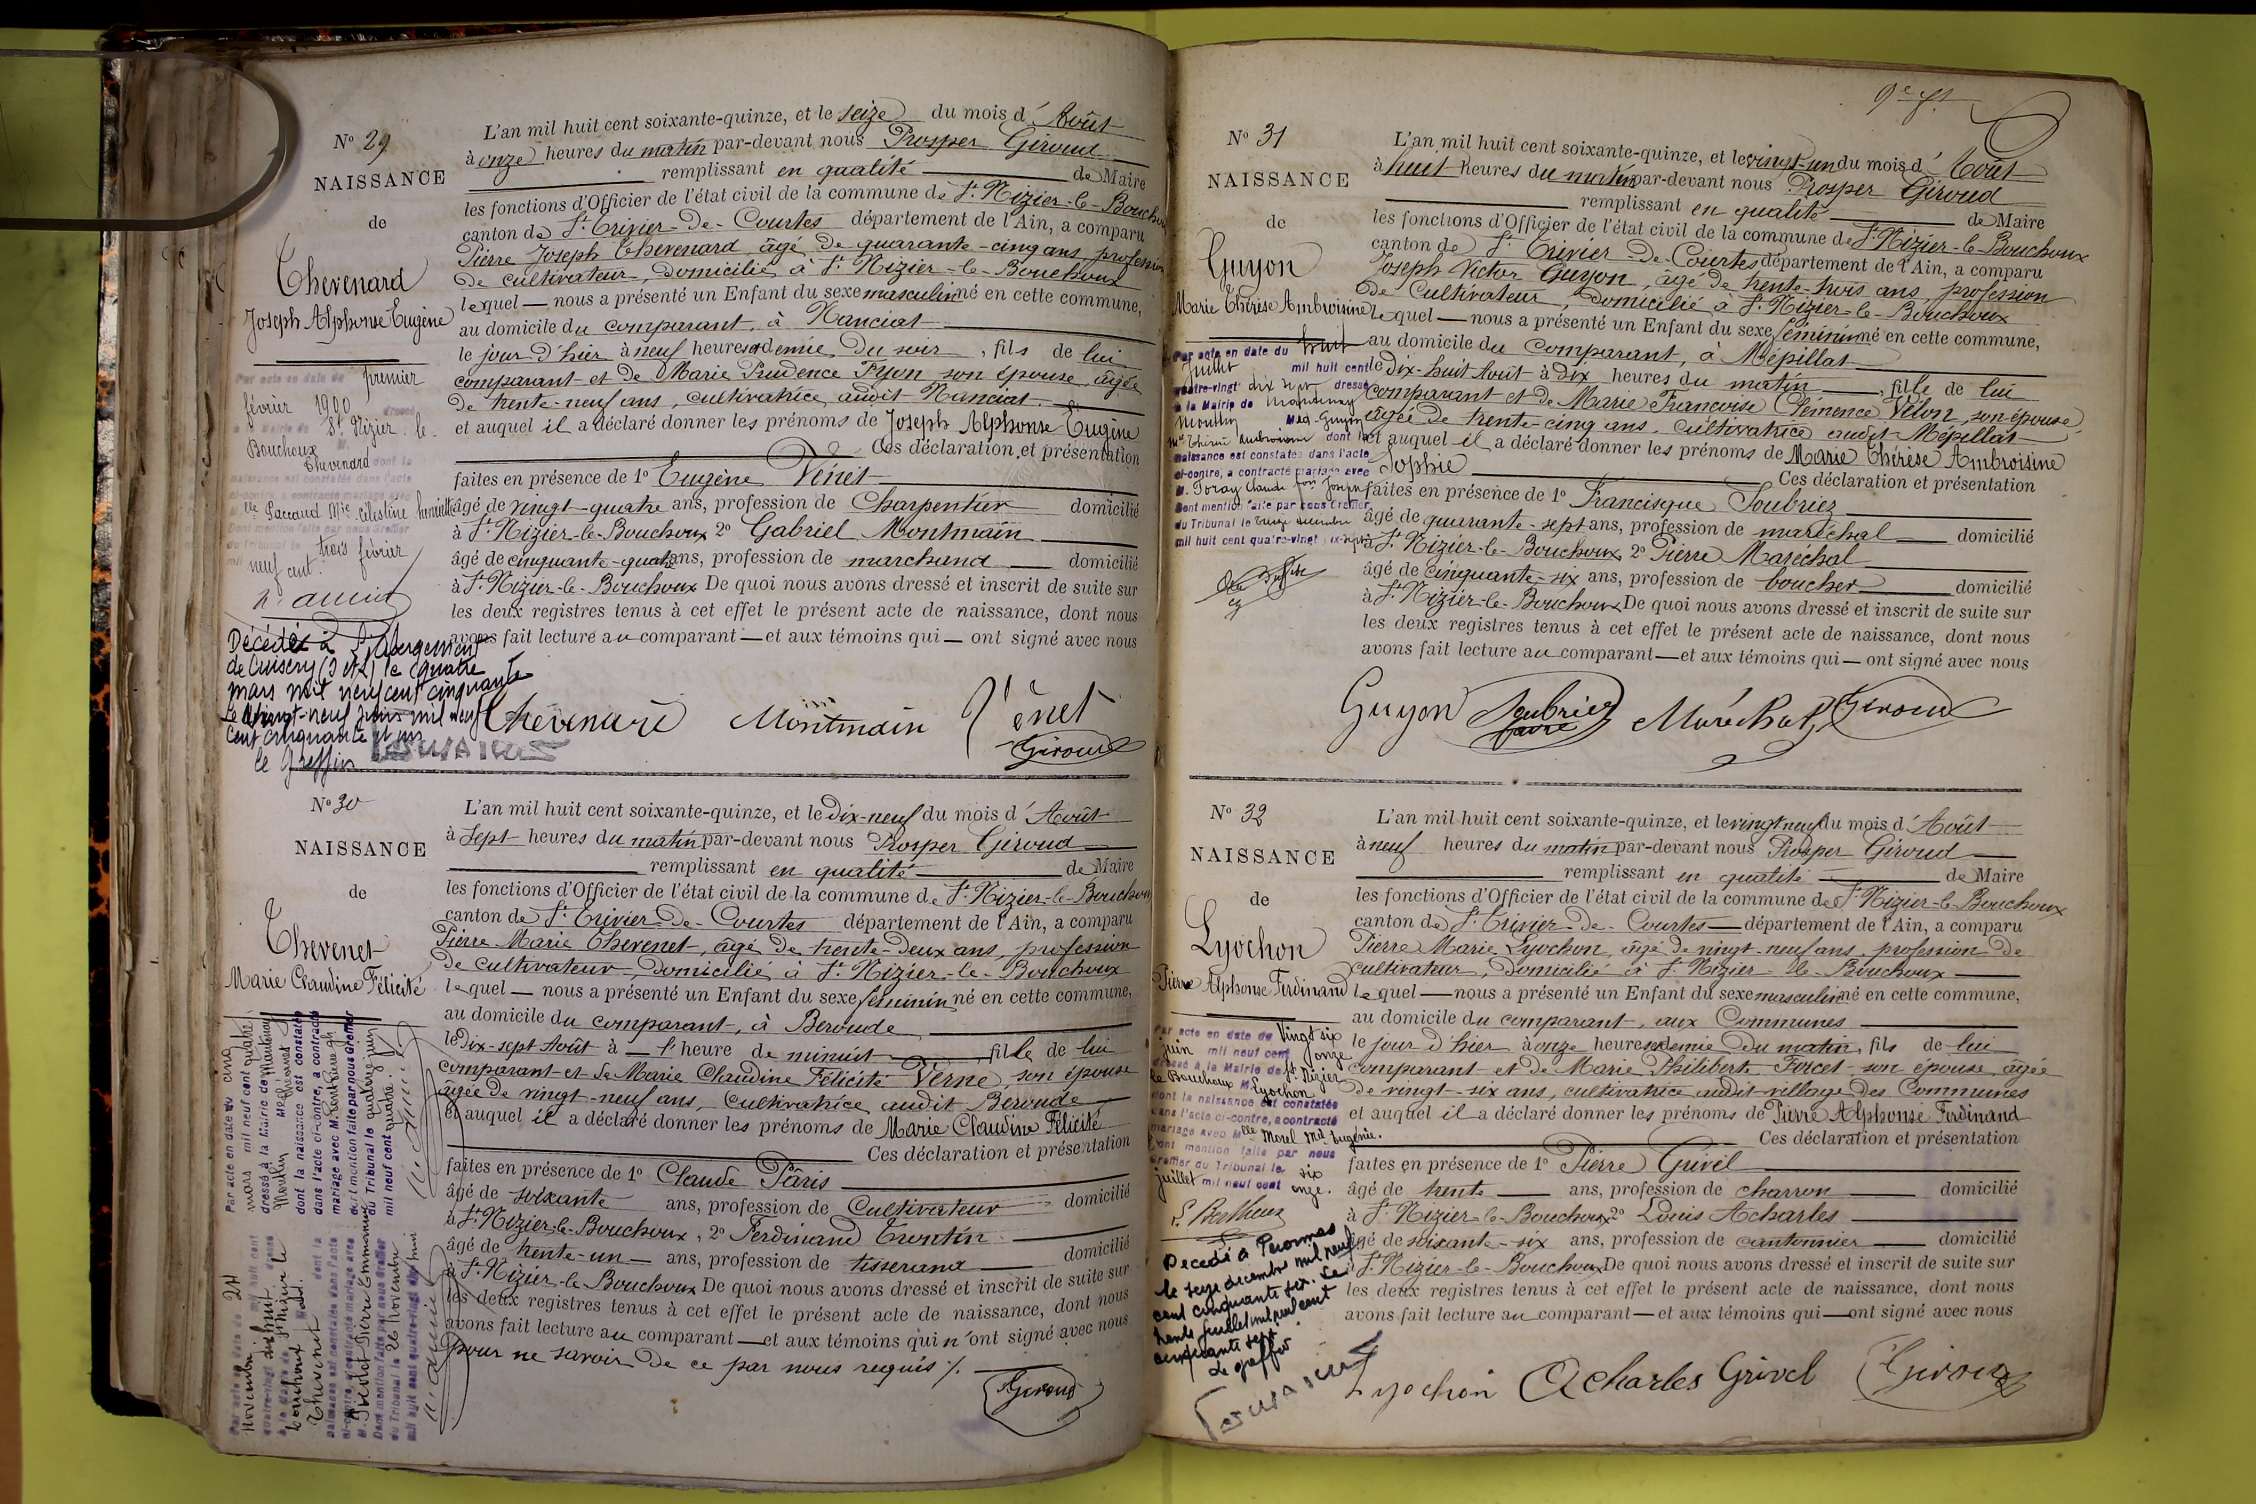 N° 29
NAISSANCE
de
Thevenard
Joseph Alphonse Eugène
Par acte en date du premier
février 1900 dressé
à la Mairie de St Nizier-le-
Bouchoux M.
Thevenard dont la
naissance est constatée dans l'acte
ci-contre, a contracté mariage avec
Mie Célestine
Dont mention faite par nous Greffier
du Tribunal le trois février
mil neuf cent.
Décédé à l'Abergement
de Cuisery (S et L) le quatre
mars mil neuf cent cinquante
Le vingt-neuf juin mil neuf
cent cinquante et un
Le Greffier
L'an mil huit cent soixante-quinze, et le seize du mois d'Août
à onze heures du matin par-devant nous Prosper Giroud
remplissant en qualité de Maire
les fonctions d'Officier de l'état civil de la commune de St Nizier-le-Bouchoux
canton de St Trivier-de-Courtes département de l'Ain, a comparu
Pierre Joseph Thevenard âgé de quarante-cinq ans profession
de cultivateur, domicilié à St Nizier-le-Bouchoux
lequel — nous a présenté un Enfant du sexe masculin né en cette commune,
au domicile du comparant, à Nanciat
le jour d'hier à neuf heures demie du soir, fils de lui
comparant et de Marie Prudence Pyon son épouse, âgée
de trente-neuf ans, cultivatrice audit Nanciat
et auquel il a déclaré donner les prénoms de Joseph Alphonse Eugène
Ces déclaration et présentation
faites en présence de 1° Eugène Vênet
âgé de vingt-quatre ans, profession de Charpentier domicilié
à St Nizier-le-Bouchoux 2° Gabriel Montmain
âgé de cinquante-quatre ans, profession de marchand domicilié
à St Nizier-le-Bouchoux De quoi nous avons dressé et inscrit de suite sur
les deux registres tenus à cet effet le présent acte de naissance, dont nous
avons fait lecture au comparant — et aux témoins qui — ont signé avec nous
Thevenard Montmain Vênet
Giroud
N° 30
NAISSANCE
de
Thevenet
Marie Claudine Félicité
Par acte en date du cinq
mars mil neuf cent quatre
dressé à la Mairie de Mantenay
Montlin Melle Thevenet
dont la naissance est constatée
dans l'acte ci-contre, a contracté
mariage avec M.
dont mention faite par nous Greffier
du Tribunal le quatorze juin
mil neuf cent quatre.
Par acte en date du 24
novembre mil huit cent
quatre-vingt dix huit dressé
à la Mairie de St Nizier le
Bouchoux Made.
Thevenet dont la
naissance est constatée dans l'acte
ci-contre, a contracté mariage avec
M. Pierre Emmanuel
Dont mention faite par nous Greffier
du Tribunal le 26 novembre
mil huit cent quatre-vingt dix huit
L'an mil huit cent soixante-quinze, et le dix-neuf du mois d'Août
à sept heures du matin par-devant nous Prosper Giroud
remplissant en qualité de Maire
les fonctions d'Officier de l'état civil de la commune de St Nizier-le-Bouchoux
canton de St Trivier-de-Courtes département de l'Ain, a comparu
Pierre Marie Thevenet, âgé de trente-deux ans, profession
de cultivateur, domicilié à St Nizier-le-Bouchoux
lequel — nous a présenté un Enfant du sexe féminin né en cette commune,
au domicile du comparant, à Beroude
le dix-sept Août à — l'heure de minuit, fille de lui
comparant et de Marie Claudine Félicité Verne, son épouse
âgée de vingt-neuf ans, cultivatrice audit Beroude
et auquel il a déclaré donner les prénoms de Marie Claudine Félicité
Ces déclaration et présentation
faites en présence de 1° Claude Pâris
âgé de soixante ans, profession de Cultivateur domicilié
à St Nizier-le-Bouchoux, 2° Ferdinand Trontin
âgé de trente-un — ans, profession de tisserand domicilié
à St Nizier-le-Bouchoux De quoi nous avons dressé et inscrit de suite sur
les deux registres tenus à cet effet le présent acte de naissance, dont nous
avons fait lecture au comparant — et aux témoins qui n'ont signé avec nous
pour ne savoir de ce par nous requis ./.
Giroud
N° 31
NAISSANCE
de
Guyon
Marie Thérèse Ambroisine
Par acte en date du huit
Juillet mil huit cent
quatre-vingt dix sept dressé
à la Mairie de Mantenay
Montlin Med. Guyon
Mie Thérèse Ambroisine dont la
naissance est constatée dans l'acte
ci-contre, a contracté mariage avec
M. Poray Claude Joseph
Dont mention faite par nous Greffier
du Tribunal le treize décembre
mil huit cent quatre-vingt dix-sept
L'an mil huit cent soixante-quinze, et le vingt-un du mois d'Août
à huit heures du matin par-devant nous Prosper Giroud
remplissant en qualité de Maire
les fonctions d'Officier de l'état civil de la commune de St Nizier-le-Bouchoux
canton de St Trivier-de-Courtes département de l'Ain, a comparu
Joseph Victor Guyon, âgé de trente-trois ans, profession
de Cultivateur, domicilié à St Nizier-le-Bouchoux
lequel — nous a présenté un Enfant du sexe féminin né en cette commune,
au domicile du comparant, à Mépillat
le dix-huit Août à dix heures du matin, fille de lui
comparant et de Marie Françoise Clémence Velon, son épouse
âgée de trente-cinq ans, cultivatrice audit Mépillat
et auquel il a déclaré donner les prénoms de Marie Thérèse Ambroisine
Sophie Ces déclaration et présentation
faites en présence de 1° Francisque Soubriez
âgé de quarante-sept ans, profession de maréchal domicilié
à St Nizier-le-Bouchoux, 2° Pierre Maréchal
âgé de cinquante-six ans, profession de boucher domicilié
à St Nizier-le-Bouchoux De quoi nous avons dressé et inscrit de suite sur
les deux registres tenus à cet effet le présent acte de naissance, dont nous
avons fait lecture au comparant — et aux témoins qui — ont signé avec nous
Guyon Soubriez Maréchal Giroud
N° 32
NAISSANCE
de
Lyochon
Pierre Alphonse Ferdinand
Par acte en date du vingt six
juin mil neuf cent onze
dressé à la Mairie de St Nizier
le Bouchoux M. Lyochon
dont la naissance est constatée
dans l'acte ci-contre, a contracté
mariage avec Melle Morel Mie Eugénie.
Dont mention faite par nous
Greffier du Tribunal le six
juillet mil neuf cent onze.
Décédé à Peronnas
le seize décembre mil neuf
cent cinquante six. Le
trente juillet mil neuf cent
cinquante sept
Le greffier
L'an mil huit cent soixante-quinze, et le vingt neuf du mois d'Août
à neuf heures du matin par-devant nous Prosper Giroud
remplissant en qualité de Maire
les fonctions d'Officier de l'état civil de la commune de St Nizier-le-Bouchoux
canton de St Trivier-de-Courtes — département de l'Ain, a comparu
Pierre Marie Lyochon, âgé de vingt-neuf ans, profession de
cultivateur, domicilié à St Nizier-le-Bouchoux
lequel — nous a présenté un Enfant du sexe masculin né en cette commune,
au domicile du comparant, aux Communes
le jour d'hier à onze heures demie du matin, fils de lui
comparant et de Marie Philiberte Forcet son épouse, âgée
de vingt-six ans, cultivatrice audit village des Communes
et auquel il a déclaré donner les prénoms de Pierre Alphonse Ferdinand
Ces déclaration et présentation
faites en présence de 1° Pierre Grivel
âgé de trente — ans, profession de charron domicilié
à St Nizier-le-Bouchoux 2° Louis Acharles
âgé de soixante-six ans, profession de cantonnier domicilié
à St Nizier-le-Bouchoux De quoi nous avons dressé et inscrit de suite sur
les deux registres tenus à cet effet le présent acte de naissance, dont nous
avons fait lecture au comparant — et aux témoins qui — ont signé avec nous
Lyochon Acharles Grivel Giroud